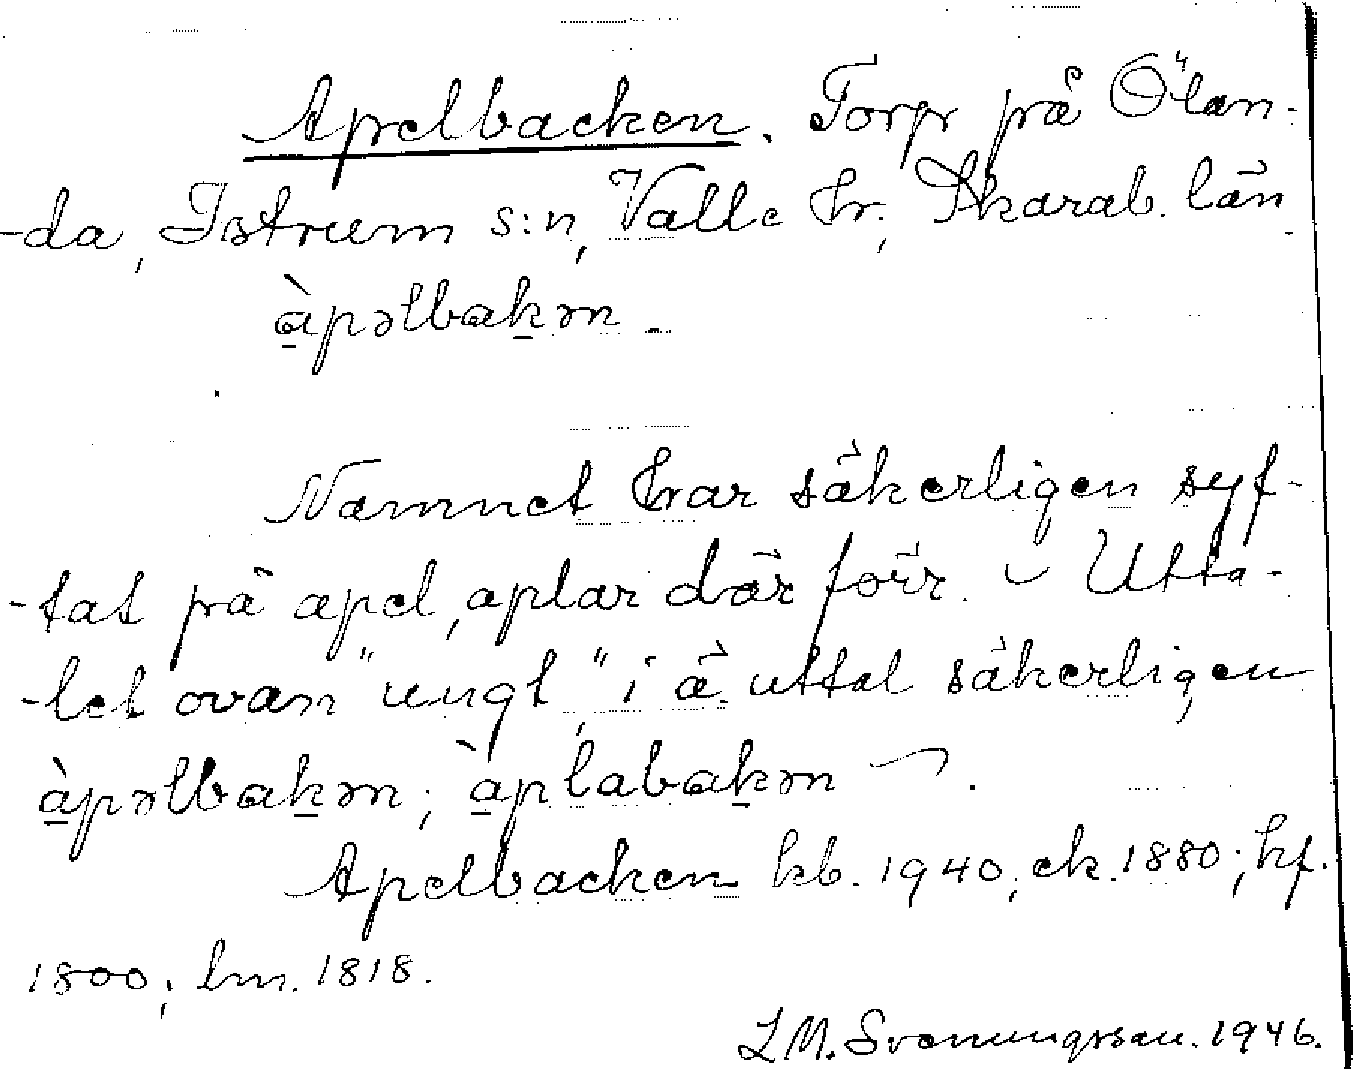 Apelbacken. Torp på Ölan-
-da, Istrum s:n, Valle hr., Skarab. län
à̠pəlbak̠ən.
Namnet har säkerligen syf-
-tat på apel, aplar där förr. – Utta-
-let ovan "ungt", i ä. uttal säkerligen
à̠pəlbak̠ən; à̠plabak̠ən –.
Apelbacken kb. 1940; ek. 1880; hf.
1800; lm. 1818.
L M. Svenungsson. 1946.